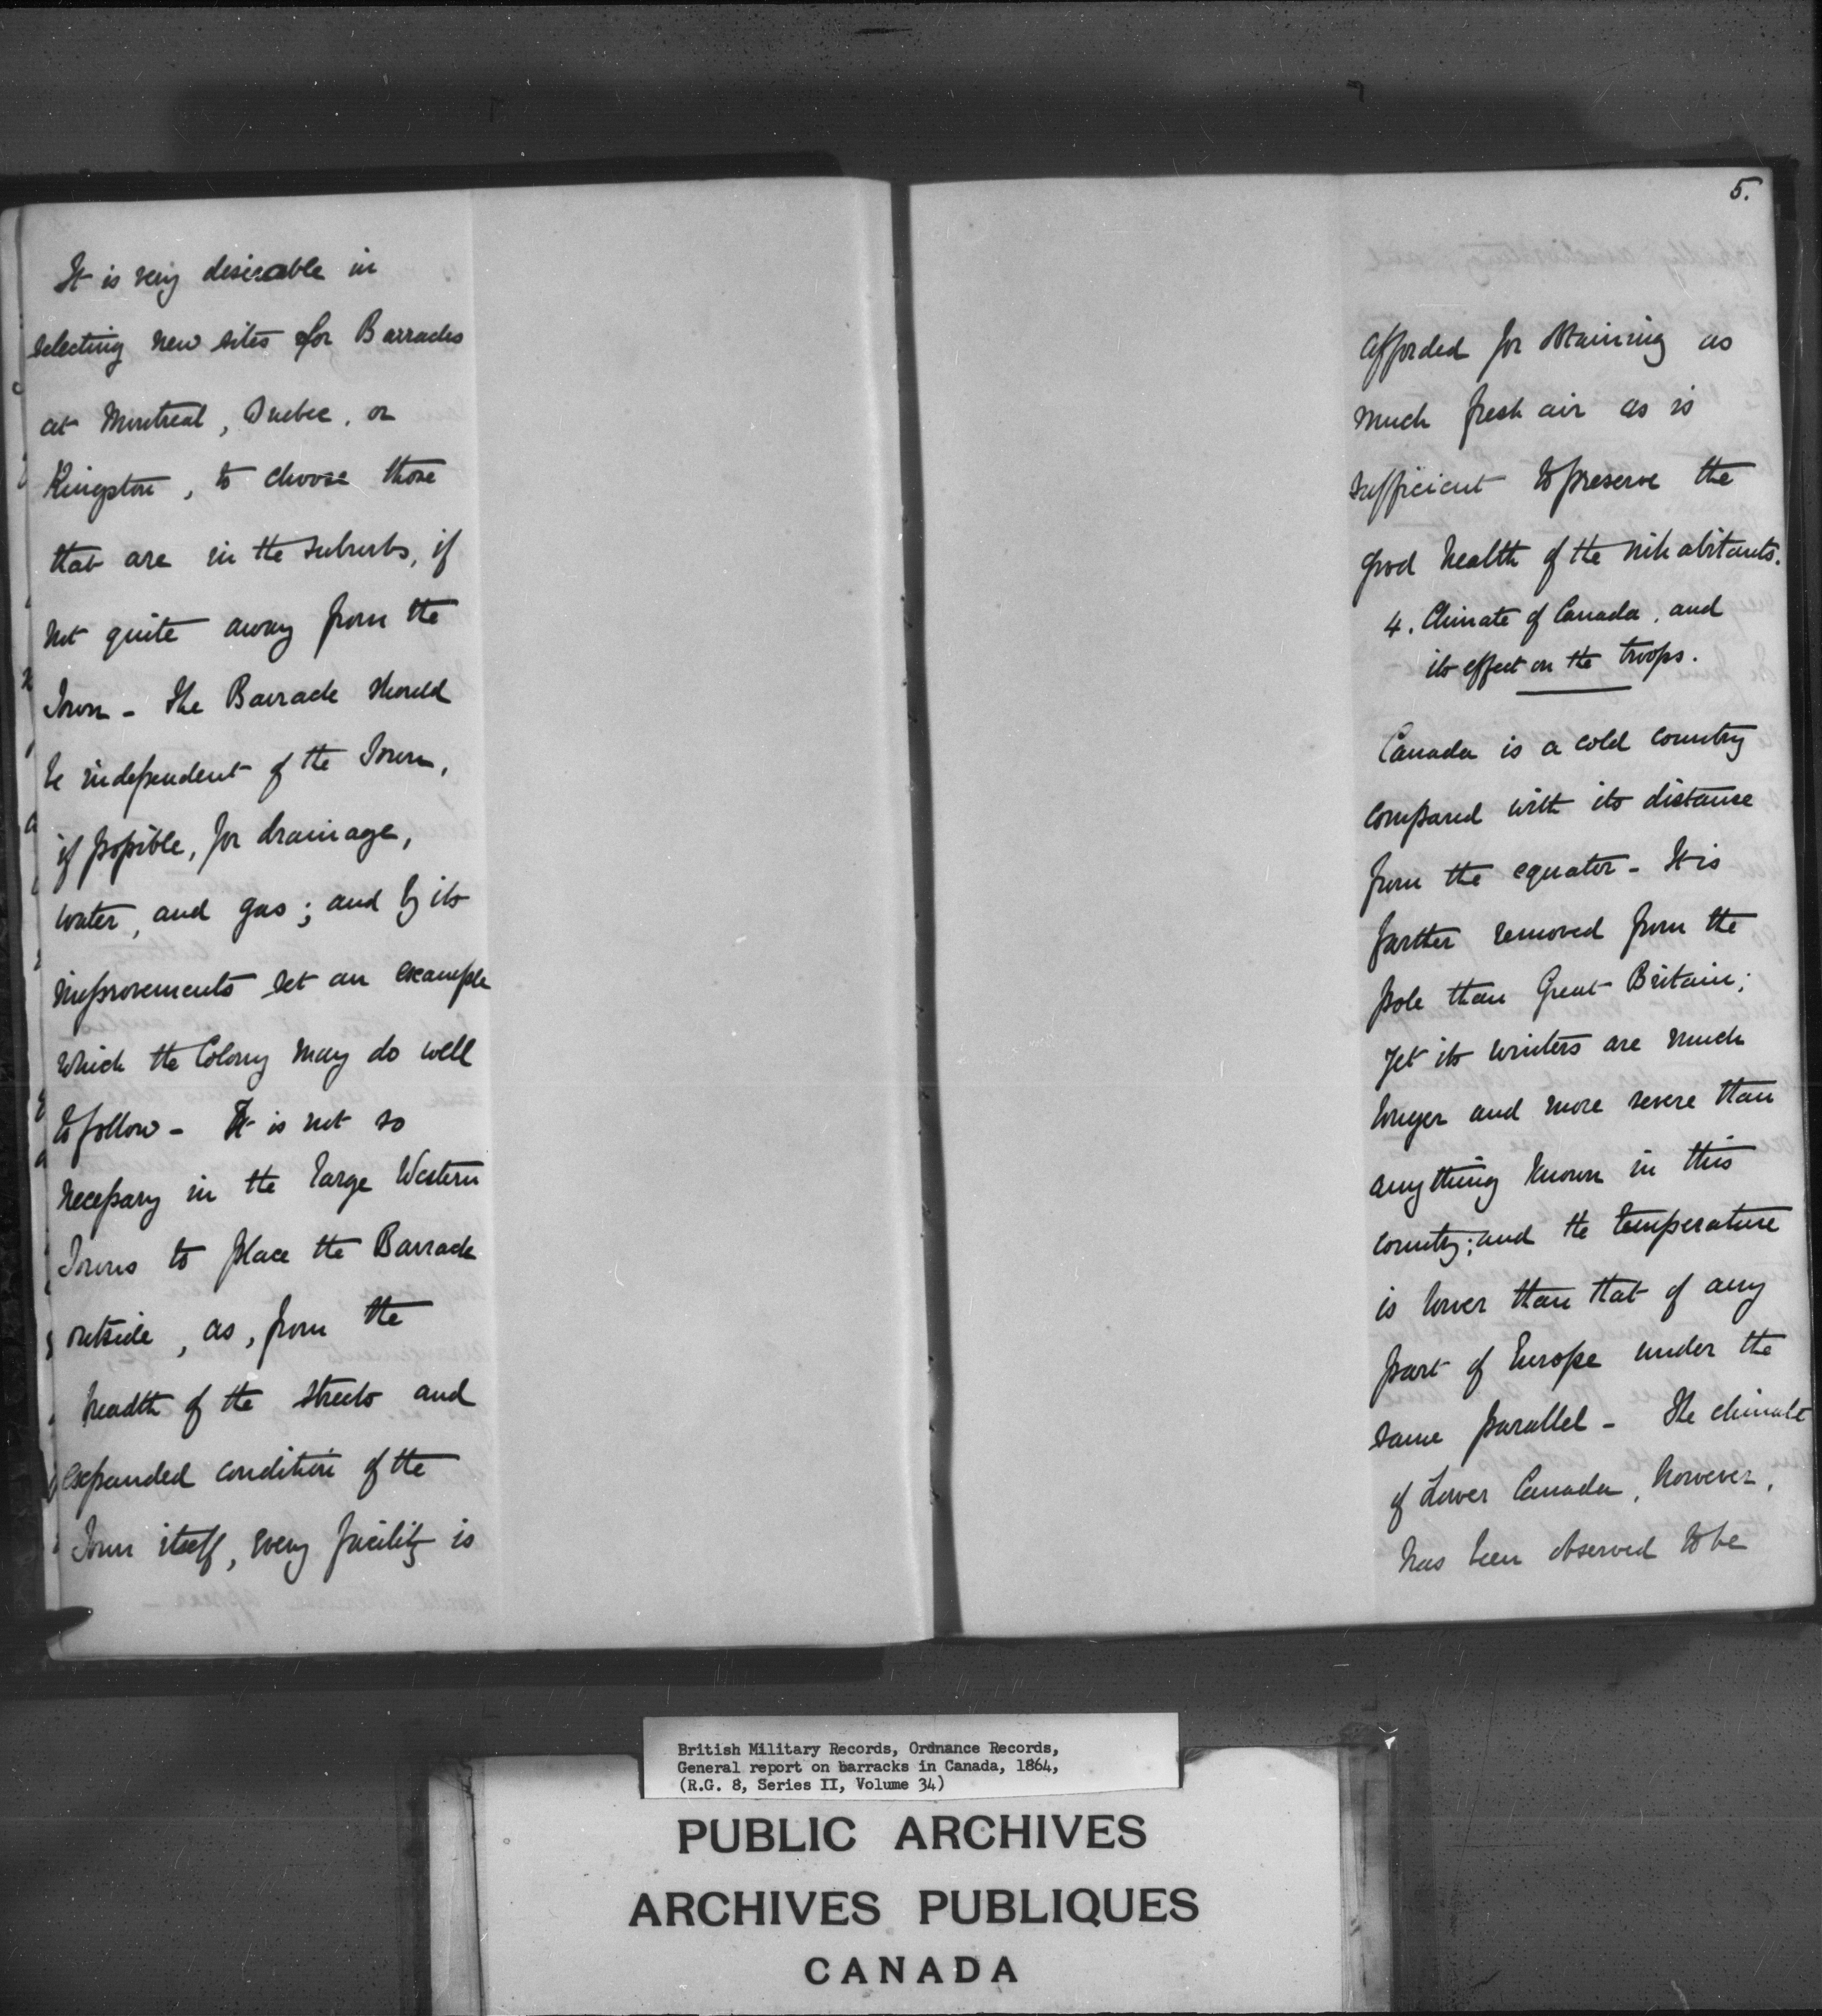 It is very desireable in
selecting new sites for Barracks
at Montreal, Quebec, or
Kingston, to choose those
that are in the suburbs, if
not quite away from the
Town - The Barrack should
be independent of the Town,
if possible, for drainage,
water, and gas; and by its
improvements set an example
which the Colony may do well
to follow - It is not so
necessary in the large Western
Towns to place the Barrack
outside, as, from the
breadth of the streets and
expanded condition of the
Town itself, every facility is
5.
afforded for obtaining as
much fresh air as is
sufficient to preserve the
good health of the inhabitants.
4. Climate of Canada, and
its effect on the troops.
Canada is a cold country
compared with its distance
from the equator - It is
farther removed from the
pole than Great Britain;
yet its winters are much
longer and more severe than
anything known in this
country; and the temperature
is lower than that of any
part of Europe under the
same parallel - The climate
of Lower Canada, however,
has been observed to be
British Military Records, Ordnance Records,
General report on barracks in Canada, 1864,
(R.G. 8, Series II, Volume 34)
PUBLIC ARCHIVES
ARCHIVES PUBLIQUES
CANADA